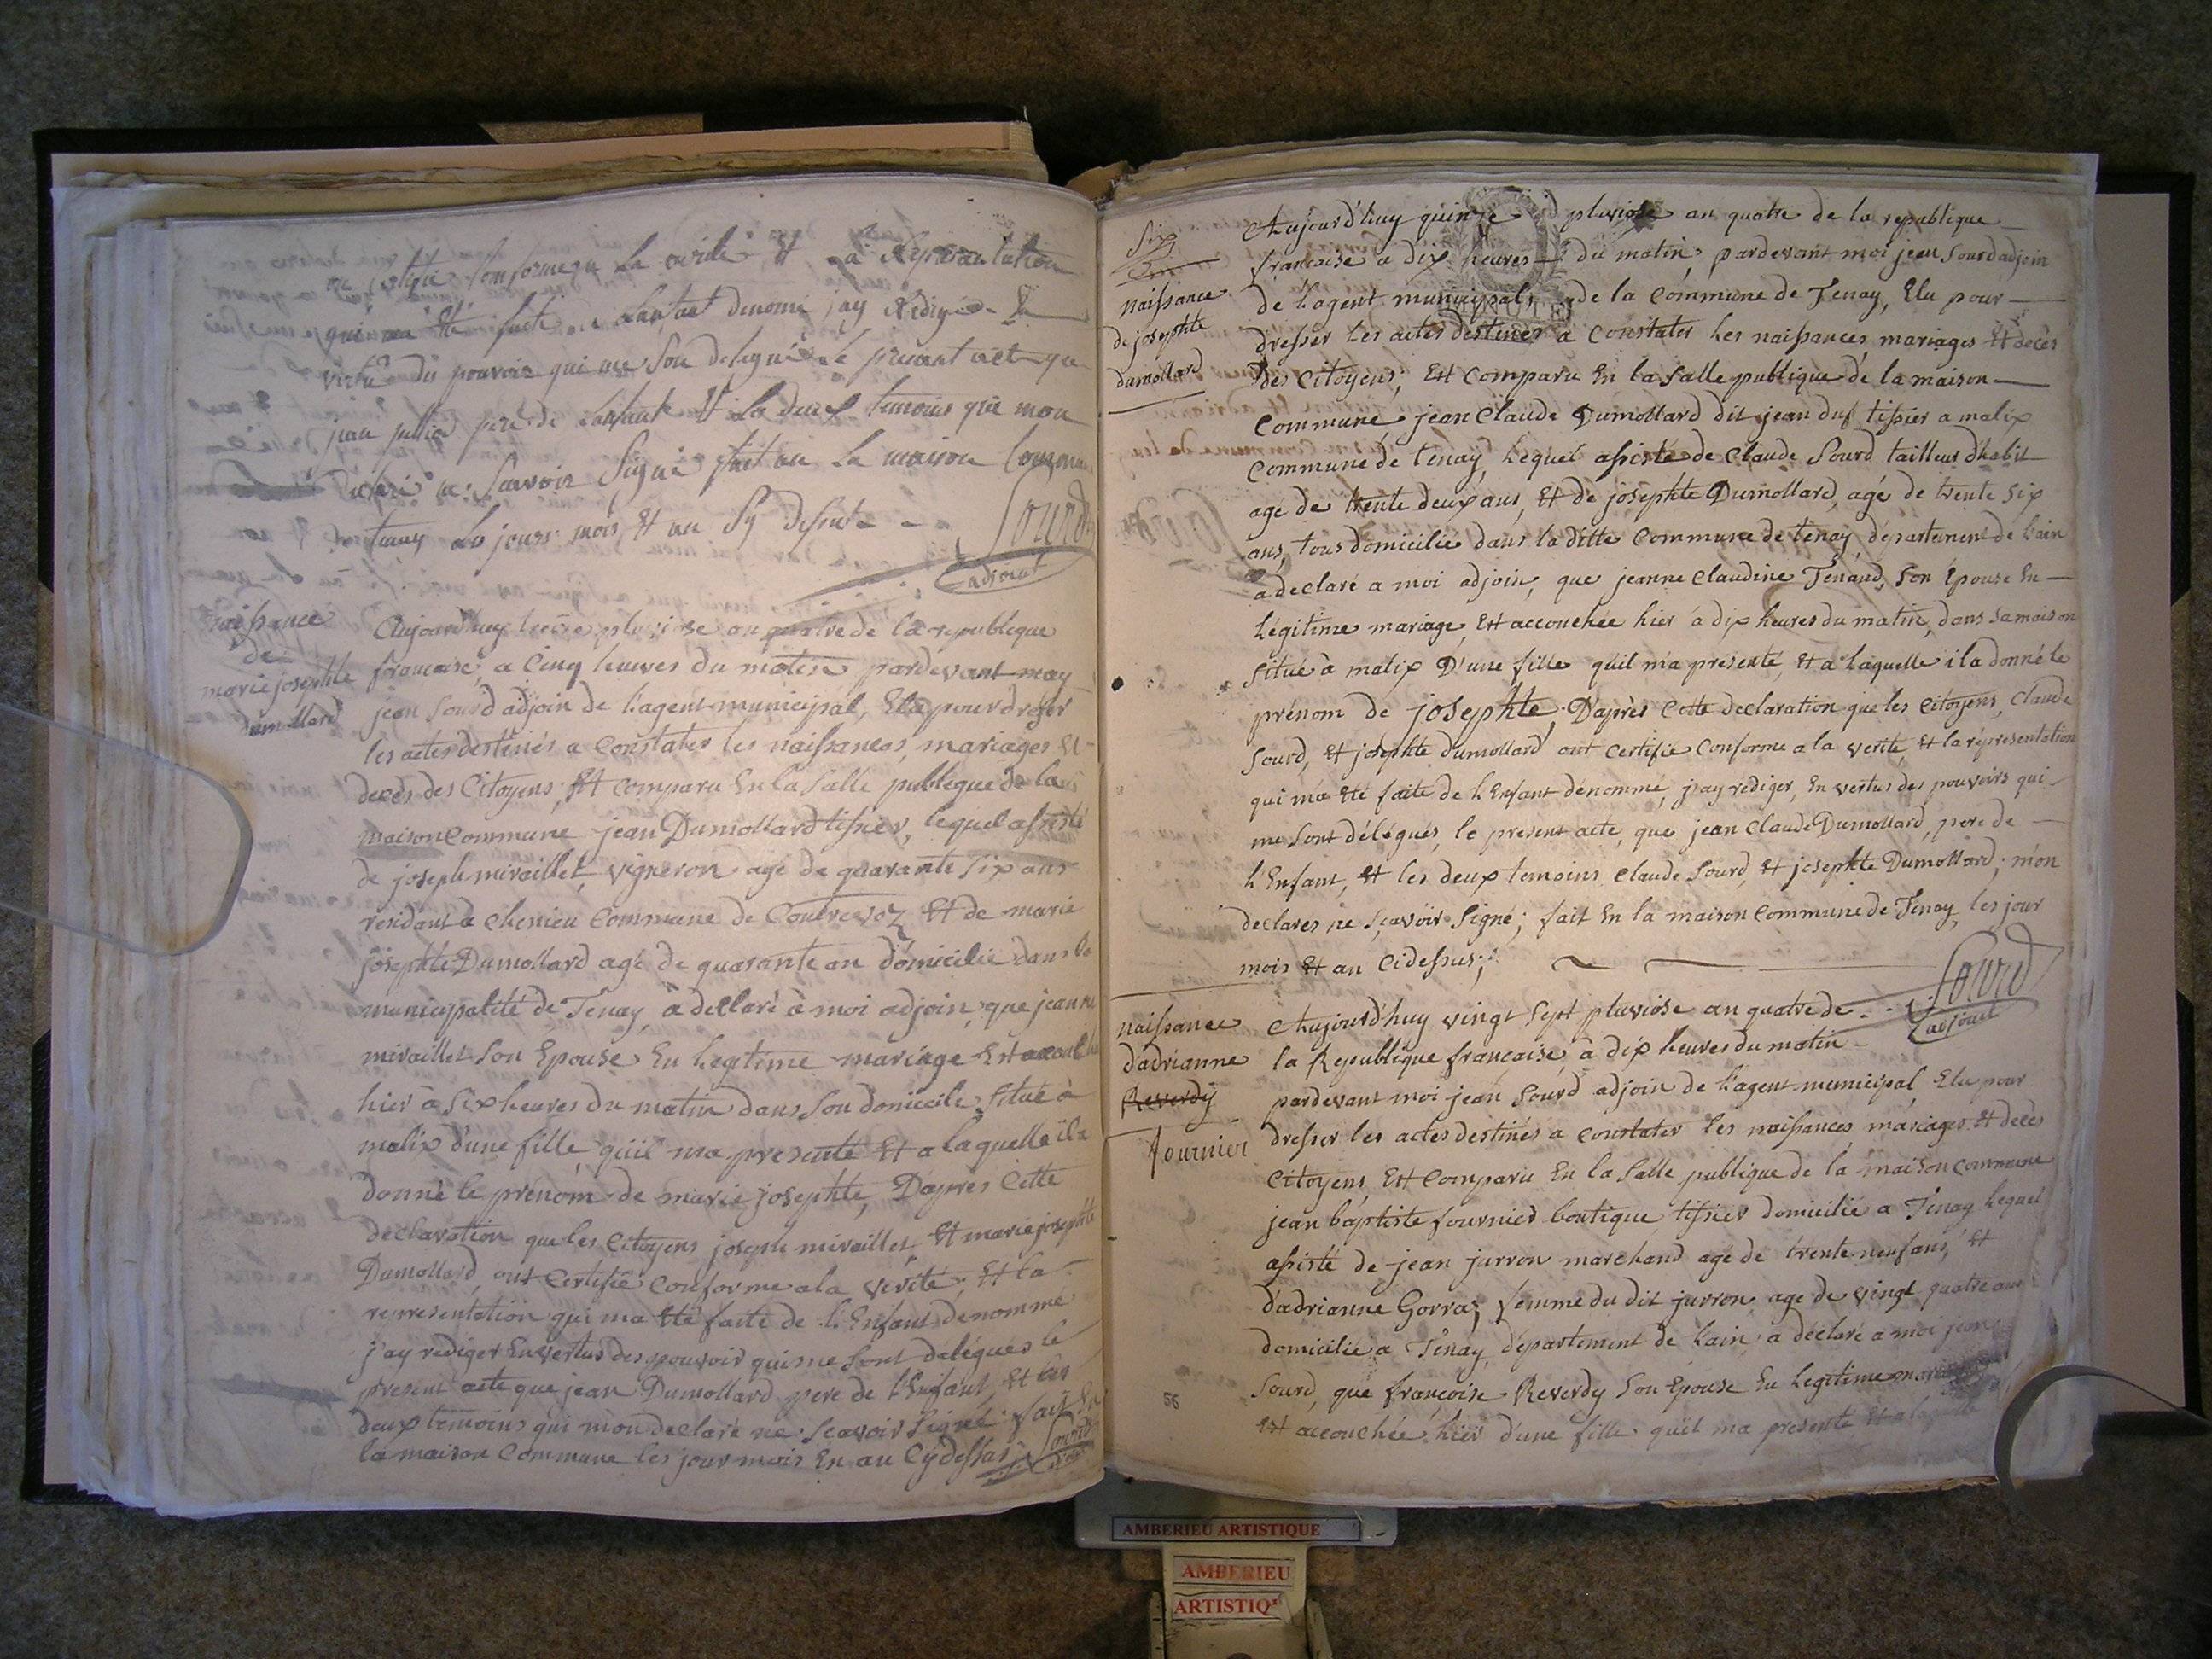 qui a été faite de l'enfant denomé j'ay redigé En
vertu du pouvoir qui me son delegué le présant acte que
jean père de l'enfant Et la deux temoins qui mon
declaré ne savoir signé fait en la maison Commune
de tenay les jours mois Et an Sy desus
Sourd
adjoint
naissance
de
marie josephte
dumollard
Aujourd'huy treize pluviose an quatre de la republique
francaise, a Cinq heures du matin pardevant moy
jean Sourd adjoin de l'agent municipal, Elu pour dréser
les actes destinés a Constater les naissances, mariages Et
decés des Citoyens, Est comparu En la Salle publique de la
maison commune jean Dumollard tissier, lequel assisté
de joseph miraillet, vigneron agé de quarante six ans
residant à chemieu Commune de Contrevoz Et de marie
josephte Dumollard agé de quarante an domicilié dans la
municipalité de Tenay, à declaré à moi adjoin, que jeanne
miraillet Son Epouse En legitime mariage Est accouché
hier à Six heures du matin dans Son domicile Situé à
malix d'une fille quil ma presenté Et a laquelle il a
donné le prénom de marie josephte, D'apres Cette
declaration que les Citoyens joseph miraillet Et marie josephte
Dumollard, ont Certifié conforme a la verité, Et la
representation qui ma Eté faite de l'Enfant denommé
j'ay rediger En vertus des pouvoir qui me Sont delégués le
present acte que jean Dumollard pere de l'Enfant, Et les
deux temoins qui mon declaré ne Scavoir Signé fait En
la maison Commune les jour mois En an Cydessus
Sourd
Six
naissance
de josephte
dumollard
Aujourd'huy quinze pluviose an quatre de la republique
francaise a dix heures du matin, pardevant moi jean Sourd adjoin
de l'agent municipal, de la Commune de Tenay, Elu pour
dresser les actes destinés a Constater les naissances mariages Et decès
des Citoyens, Est Comparu En la Salle publique de la maison
Commune, jean Claude Dumollard dit jean duf tissier a malix
Commune de tenay, lequel assisté de Claude Sourd tailleur d'habit
agé de trente deux ans, Et de josephte Dumollard, agé de trente six
ans, tous domicilié dans la ditte Commune de tenay, département de l'ain
a declaré a moi adjoin, que jeanne Claudine Tenaud, Son Epouse En
Légitime mariage, Est accouchée hier à dix heures du matin, dans sa maison
situé à malix D'une fille quil ma présenté, Et a laquelle il a donné le
prénom de josephte, D'après Cette declaration que les Citoyens, Claude
Sourd, Et josephte dumollard ont Certifié Conforme a la verité, Et la réprésentation
qui ma Eté faite de l'Enfant dénommé, j'ay rédiger, En vertus des pouvoirs qui
me Sont délégués, le present acte, que jean Claude Dumollard, pere de
l'Enfant, Et les deux temoins Claude Sourd, Et josephte Dumollard, m'on
declarés ne Sçavoir Signé; fait En la maison Commune de Tenay, les jour
mois Et an Cidessus;
Sourd
adjoint
naissance
d'adrianne
Reverdy
fournier
Aujourd'huy vingt Sept pluviose an quatre de
la Republique francaise, à dix heures du matin
pardevant moi jean Sourd adjoin de l'agent municipal Elu pour
dresser les actes destinés a Constater les naissances, mariages Et decès
Citoyens, Est Comparu En la Salle publique de la maison Commune
jean baptiste fournier boutique tissier domicilié a Tenay lequel
assisté de jean jurron marchand agé de trente neuf ans, Et
d'adrianne Gorra; femme du dit jurron, age de vingt quatre ans
domicilié a Tenay, département de l'ain a déclaré a moi jean
Sourd, que françoise Reverdy Son Epouse En legitime mariage
Est accouchée hier d'une fille quil ma presenté Et a laquelle
56
AMBERIEU ARTISTIQUE
AMBERIEU
ARTISTIQ